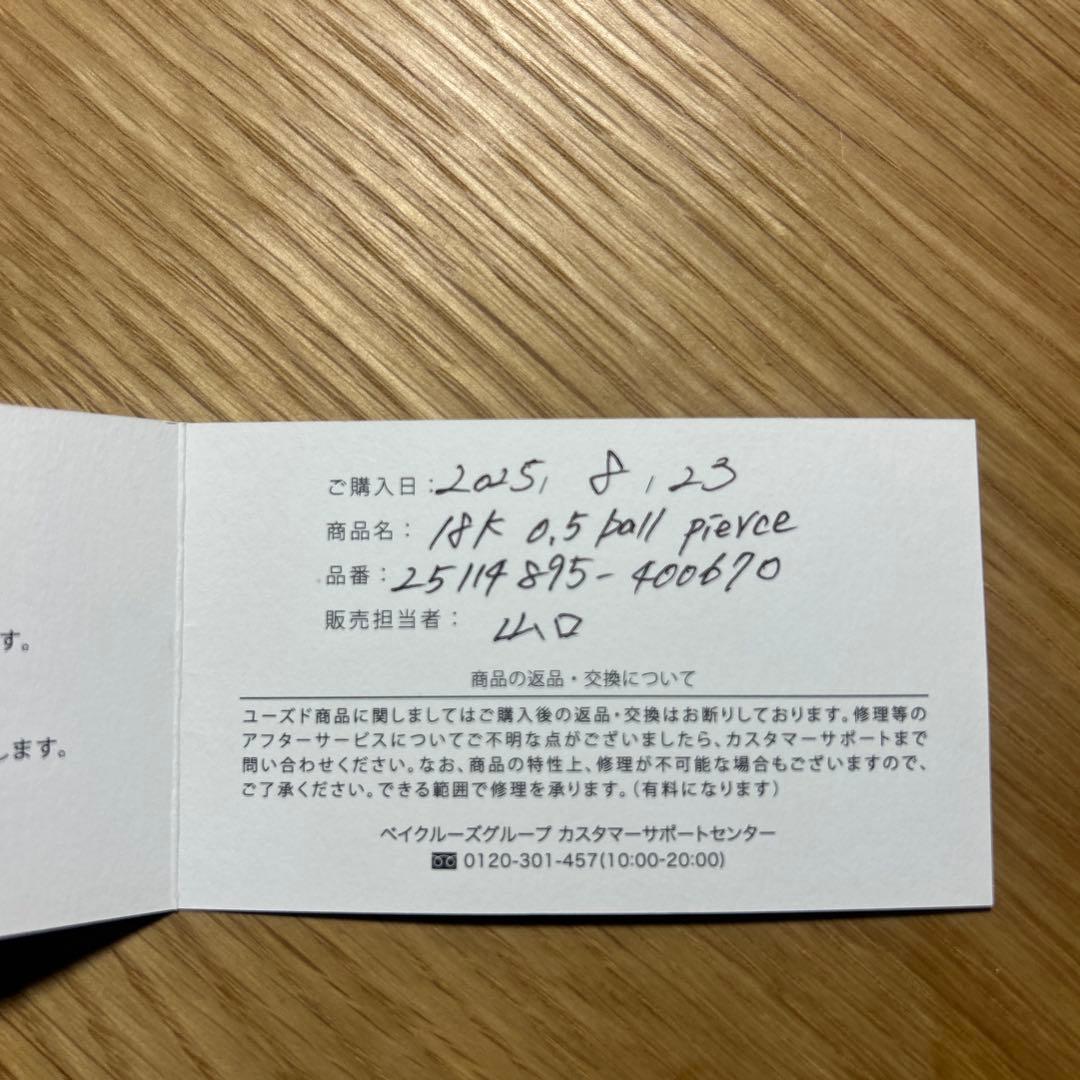 す。
します。
ご購入日：2025, 8, 23
商品名： 18K 0.5 ball pierce
品番：25114895-400670
販売担当者： 山口
商品の返品・交換について
ユーズド商品に関しましてはご購入後の返品・交換はお断りしております。修理等の
アフターサービスについてご不明な点がございましたら、カスタマーサポートまで
問い合わせください。なお、商品の特性上、修理が不可能な場合もございますので、
ご了承ください。できる範囲で修理を承ります。（有料になります）
ベイクルーズグループ カスタマーサポートセンター
0120-301-457(10:00-20:00)